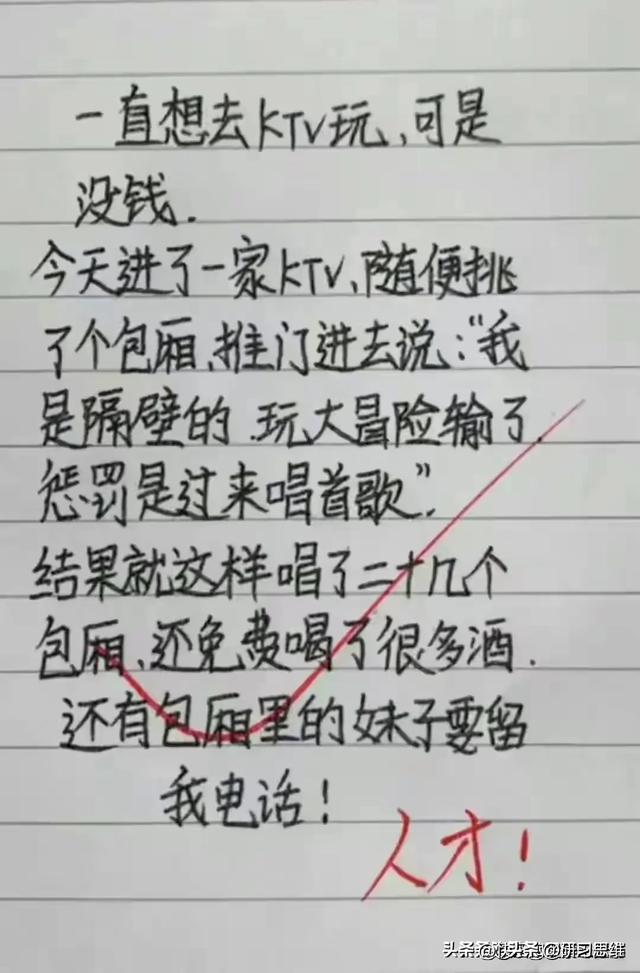 一直想去KTV玩,可是
没钱.
今天进了一家KTV,随便挑
了个包厢,推门进去说:"我
是隔壁的.玩大冒险输了.
惩罚是过来唱首歌".
结果就这样唱了二十几个
包厢,还免费喝了很多酒.
还有包厢里的妹子要留
我电话!
人才!
@研习思维